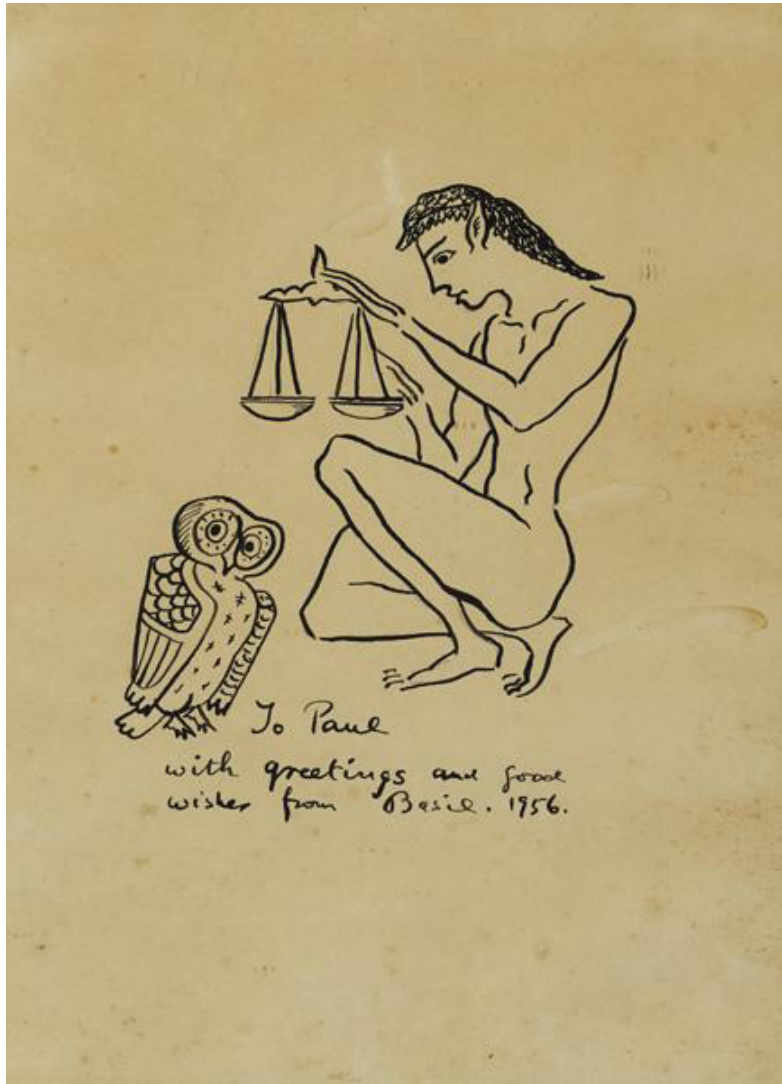 To Paul
with greetings and good
wishes from Basil. 1956.